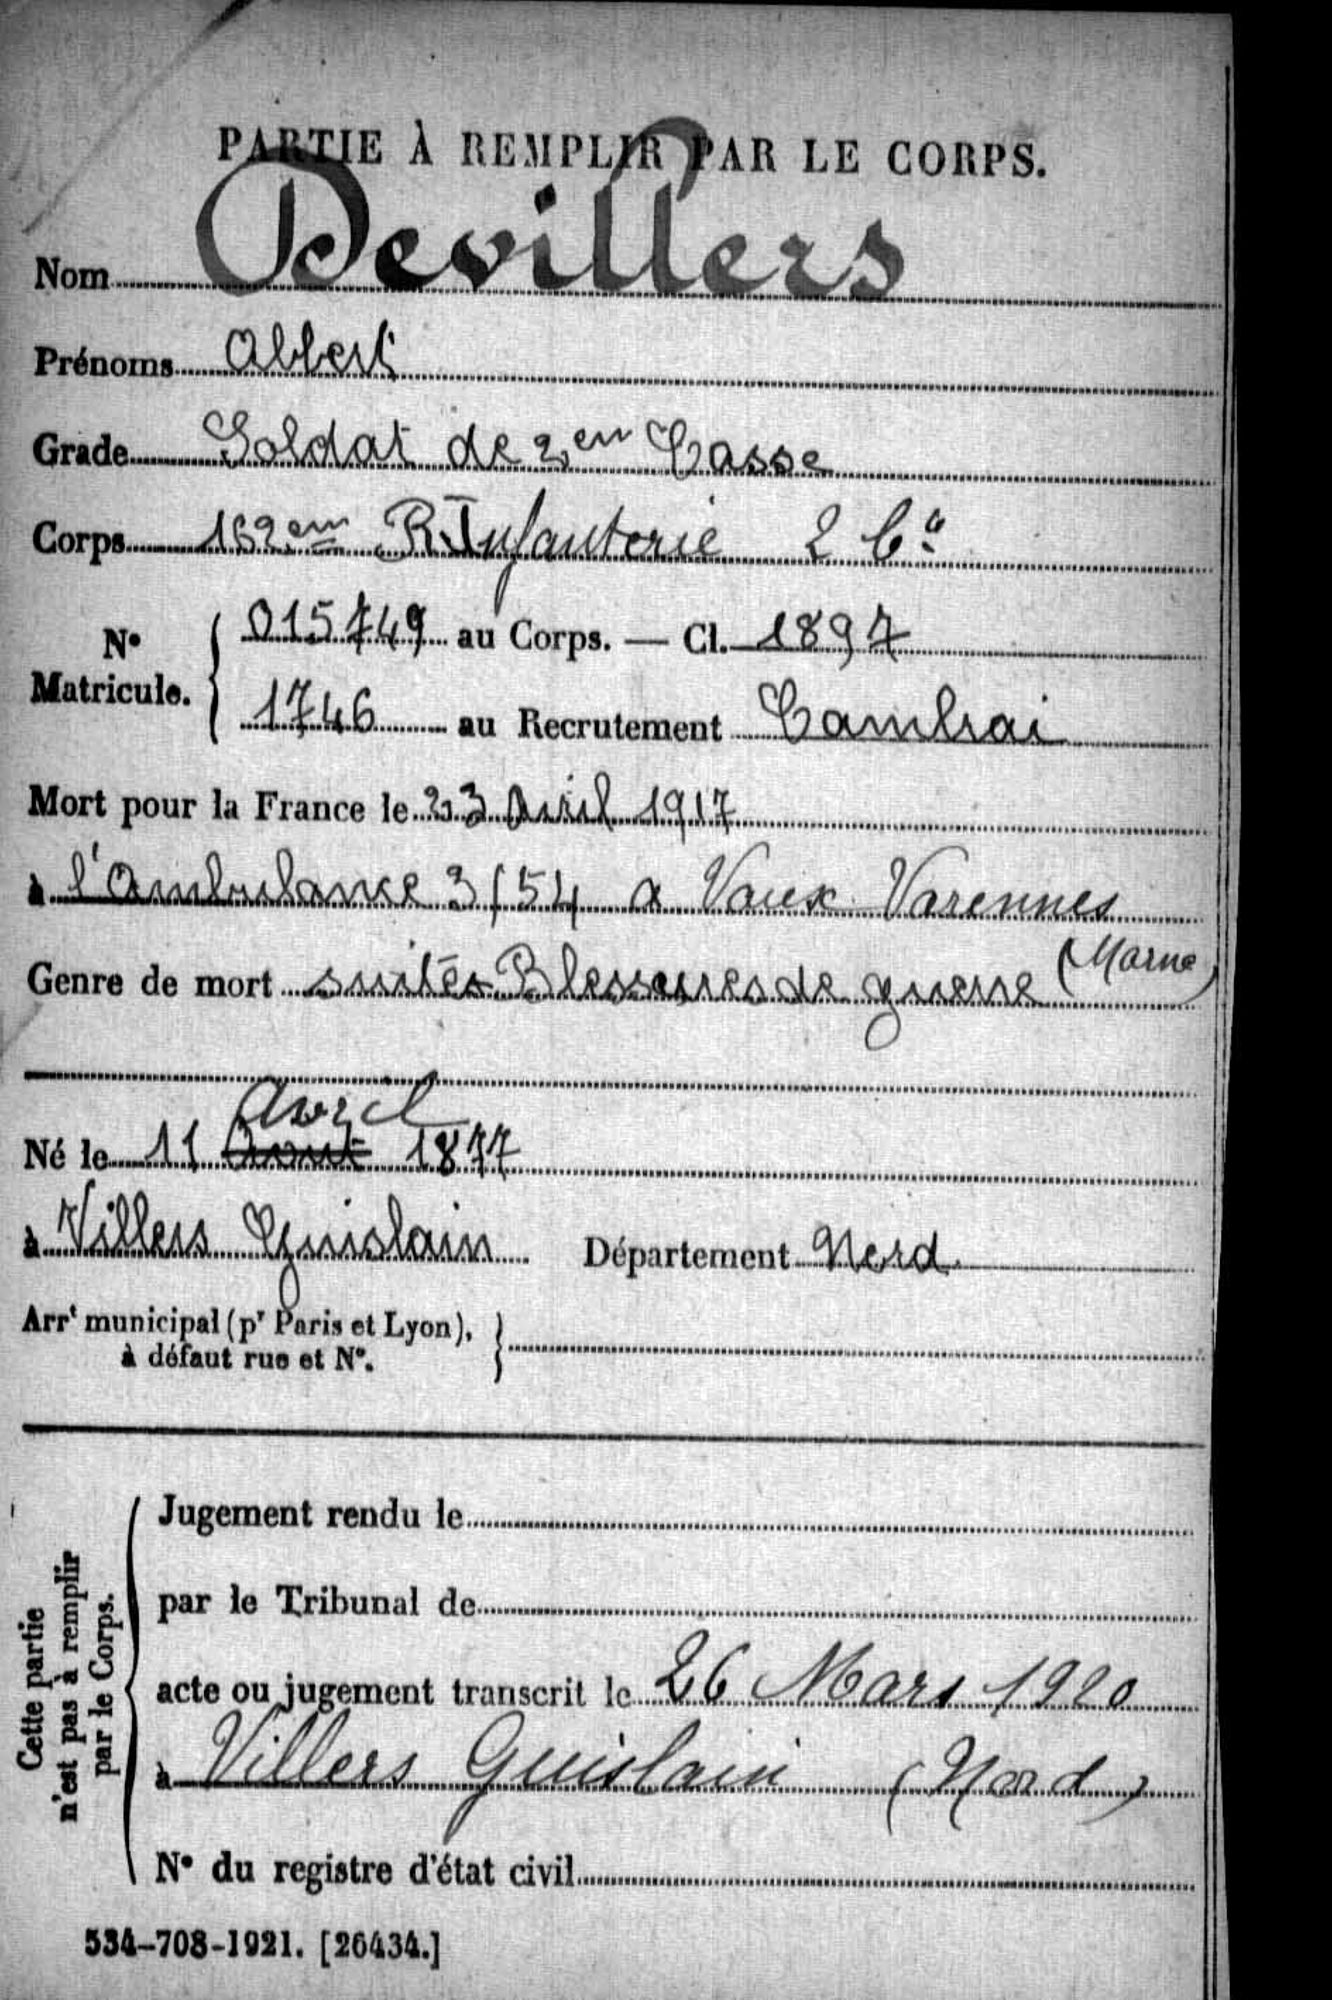 PARTIE À REMPLIR PAR LE CORPS.
Nom Devillers
Prénoms Albert
Grade Soldat de 2em Casse
Corps 162em R. Infanterie 2 Cie
N° Matricule. { 015749 au Corps. — Cl. 1897
1746 au Recrutement Cambrai
Mort pour la France le 23 Avril 1917
à l'Ambulance 3/54 a Vaux Varennes
Genre de mort suites Blessures de guerre (Marne)
Avril
Né le 11 Aout 1877
à Villers Guislain Département Nord
Arrt municipal (pr Paris et Lyon),
à défaut rue et N°.
Cette partie
n'est pas à remplir
par le Corps.
Jugement rendu le
par le Tribunal de
acte ou jugement transcrit le 26 Mars 1920
à Villers Guislain (Nord)
N° du registre d'état civil
534-708-1921. [26434.]